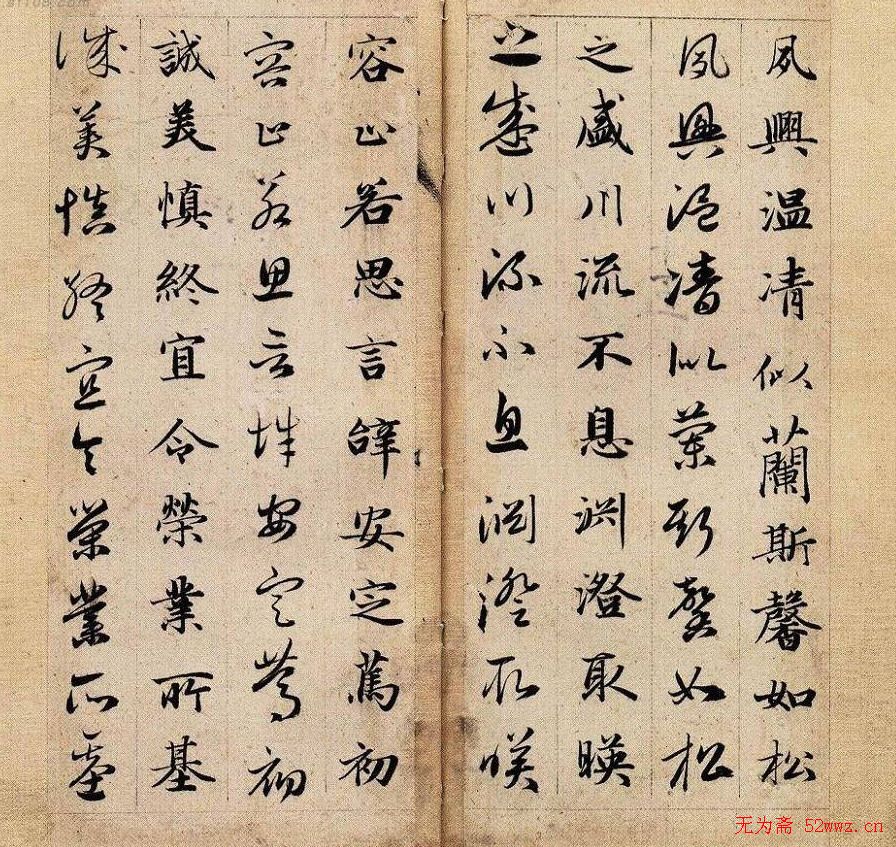 夙興温凊似蘭斯馨如松
夙興温凊似蘭斯馨如松
之盛川流不息渕澄取暎
之盛川流不息渊澄取暎
容止若思言辭安定篤初
容止若思言辭安定篤初
誠美慎終宜令榮業所基
誠美慎終宜令榮業所基
无为斋 52wwz.cn